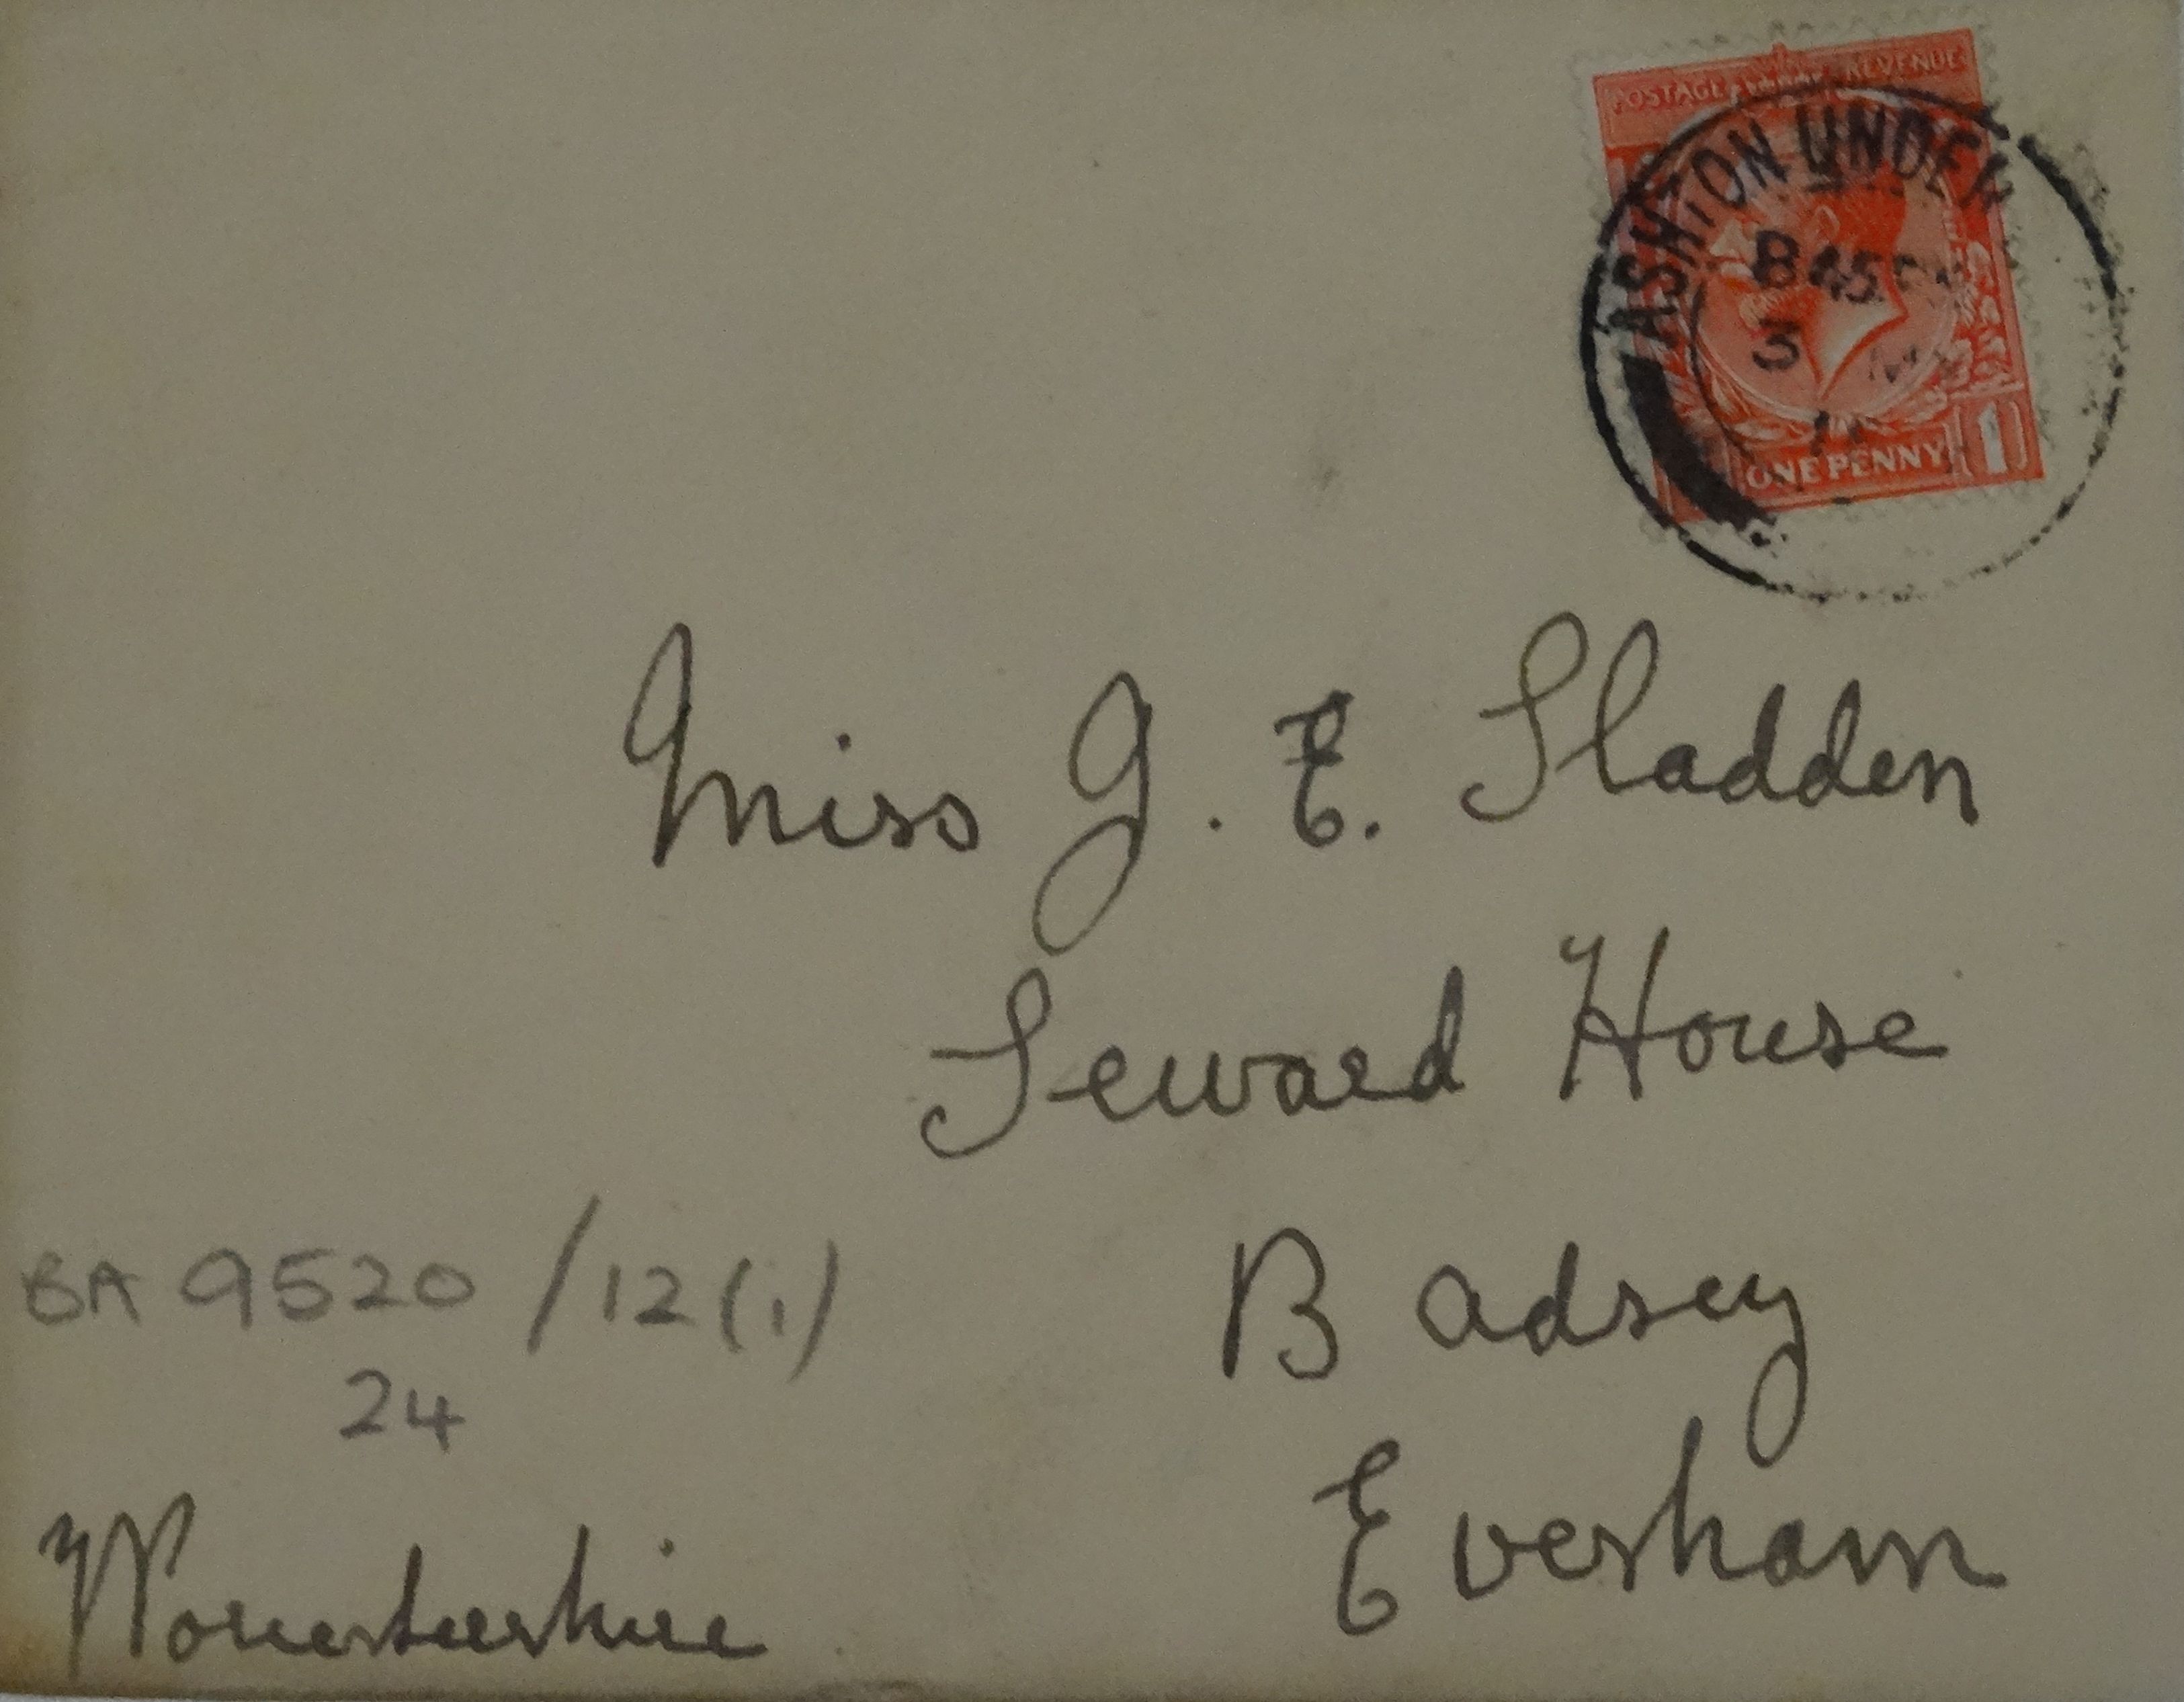 POSTAGE REVENUE
ASHTON UNDER
3
ONE PENNY 1
Miss G. E. Sladden
Seward House
Badsey
Evesham
BA 9520/12(1)
24
Worcestershire